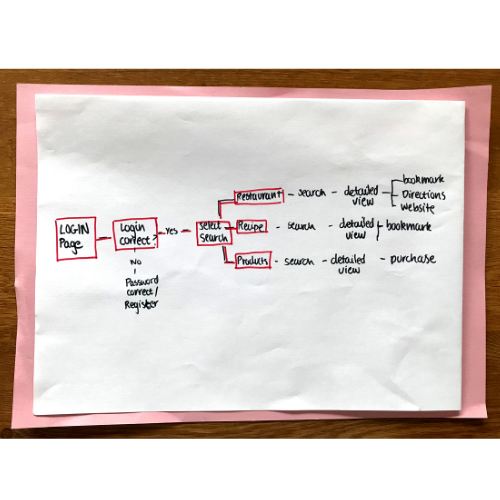 LOGIN
Page
Login
correct?
Yes
NO
Password
correct/
Register
Select
Search
Restaurant
search
detailed
view
bookmark
Directions
Website
Recipe
search
detailed
view
bookmark
Products
search
detailed
view
purchase